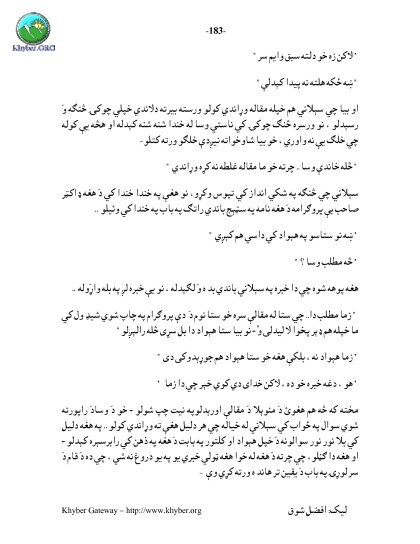 -183-
Khyber.ORG
" لاکن زه خو دلته سبق وايم سر "
" ښه ځکه هلته نه پيدا کېدلې "
او بيا چې سېلاني هم خپله مقاله وړاندې کولو ورسته بيرته د لاندې خپلې چوکۍ څنګه وَ
رسېدلو ، نو ورسره څنګ چوکۍ کې ناستې وسا له خندا شنه شنه کېدله او هڅه يې کوله
چې خلګ يې نه واوري ، خو بيا شاوخوا ته نېږدې خلګو ورته کتلو -
" څله خاندې وسا .. چرته خو ما مقاله غلطه نه کړه وړاندې "
سېلاني چې څنګه په شکي انداز کې تپوس وکړو ، نو هغې په خندا خندا کې د هغه ډاکټر
صاحب يې پروګرامه د هغه نامه په سټېج باندې راتګ په باب په خندا کې وئيلو ..
" ښه نو ستاسو په هېواد کې داسې هم کېږي "
" څه مطلب وسا ؟ "
هغه پوهه شوه چې دا خبره په سېلاني باندې بده وَ لګېدله ، نو يې خبره لږ په بله واړوله ..
" زما مطلب دا.. چې ستا له مقالې سره خو ستا نوم دَ دې پروګرام په چاپ شوي شيډول کې
ما خپله هم ډېر پخوا لا ليدلی وُ - نو بيا ستا هېواد دا بل سړی څله رالېږلو "
" زما هېواد نه ، بلکې هغه خو ستا هېواد هم جوړېدوکی دی "
" هو ، دغه خبره خو ده ، لاکن خدای دې کوي خبر چې دا زما "
مخته که څه هم هغوئ دَ منوېلا دَ مقالې اورېدلو په نيت چپ شولو - خو دَ وسا دَ راپورته
شوي سوال په ځواب کې سېلاني له خياله چې هر دليل هغې ته وړاندې کولو .. په هغه دليل
کې بلا نور نور سوالونه دَ خپل هېواد او کلتور په بابت دَ هغه په ذهن کې را برسېره کېدلو -
او هغه دا ګڼلو ، چې چرته دَ هغه له خوا هغه ټولې خبرې يو په يو دروغ نه شي ، چې ده دَ قام دَ
سر لوړۍ په باب دَ يقين تر هانده ورته کړي وې -
Khyber Gateway – http://www.khyber.org
ليک: افضل شوق